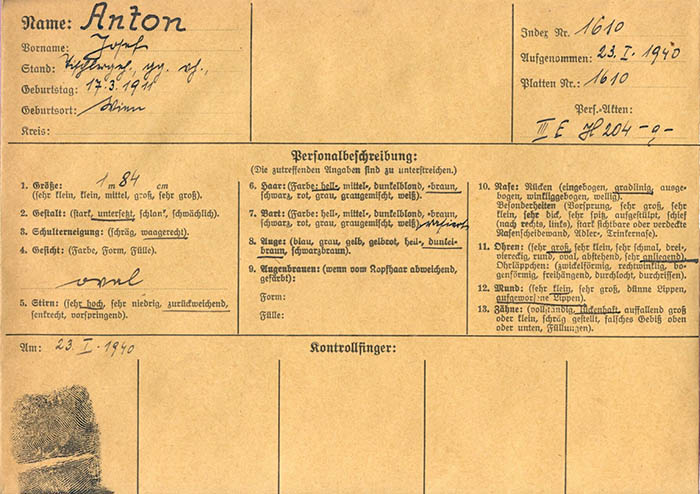 Name: Anton
Vorname: Josef
Stand: gg. rh.,
Geburtstag: 17.3.1911
Geburtsort: Wien
Kreis:
Index Nr. 1610
Aufgenommen: 23. I. 1940
Platten Nr.: 1610
Pers.-Akten:
III E H 204 -g-
Personalbeschreibung:
(Die zutreffenden Angaben sind zu unterstreichen.)
1. Größe: 1 m 84 cm
(sehr klein, klein, mittel, groß, sehr groß).
2. Gestalt: (stark, untersetzt, schlank, schwächlich).
3. Schulterneigung: (schräg, waagerecht).
4. Gesicht: (Farbe, Form, Fülle).
oval
5. Stirn: (sehr hoch, sehr niedrig, zurückweichend,
senkrecht, vorspringend).
6. Haar: (Farbe: hell-, mittel-, dunkelblond, -braun,
schwarz, rot, grau, graugemischt, weiß).
7. Bart: (Farbe: hell-, mittel-, dunkelblond, -braun,
schwarz, rot, grau, graugemischt, weiß) rasiert
8. Auge: (blau, grau, gelb, gelbrot, hell- dunkel-
braun, schwarzbraun).
9. Augenbrauen: (wenn vom Kopfhaar abweichend,
gefärbt):
Form:
Fülle:
10. Nase: Rücken (eingebogen, gradlinig, ausge-
bogen, winkliggebogen, wellig).
Besonderheiten (Vorsprung, sehr groß, sehr
klein, sehr dick, sehr spitz, aufgestülpt, schief
(nach rechts, links), stark sichtbare oder verdeckte
Nasenscheidewand, Adler-, Trinkernase).
11. Ohren: (sehr groß, sehr klein, sehr schmal, drei-,
viereckig, rund, oval, abstehend, sehr anliegend).
Ohrläppchen: (zwickelförmig, rechtwinklig, bo-
genförmig, freihängend, durchlocht, durchrissen).
12. Mund: (sehr klein, sehr groß, dünne Lippen,
aufgeworfene Lippen).
13. Zähne: (vollständig, lückenhaft, auffallend groß
oder klein, schräg gestellt, falsches Gebiß oben
oder unten, Füllungen).
Am: 23. I. 1940
Kontrollfinger: